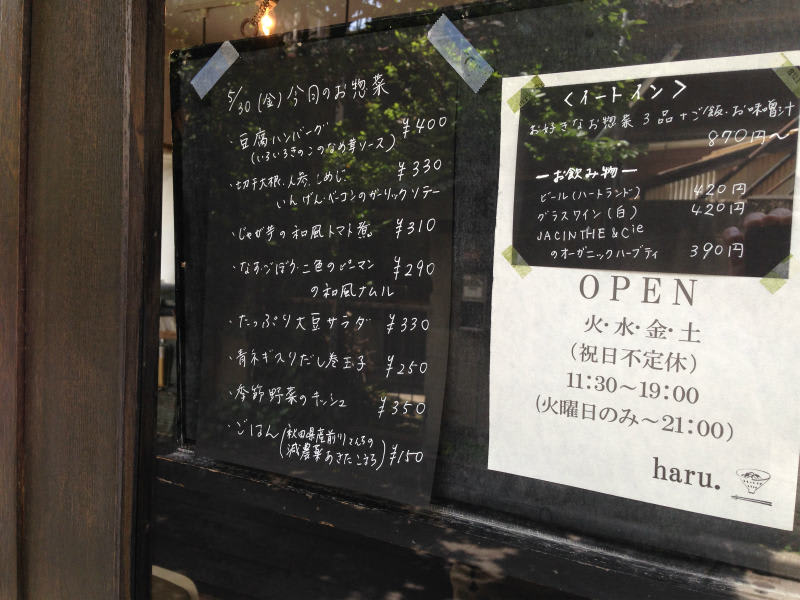 5/30 (金) 今日のお惣菜
・豆腐ハンバーグ ¥400
(いろいろきのこのなめ茸ソース)
・切干大根、人参、しめじ ¥330
いんげん・ベーコンのガーリックソテー
・じゃが芋の和風トマト煮。 ¥310
・なす・ごぼう・二色のピーマン ¥290
の和風ナムル
・たっぷり大豆サラダ ¥330
・青ネギ入りだし巻玉子 ¥250
・季節野菜のキッシュ ¥350
・ごはん(秋田県産前川さんちの
減農薬あきたこまち) ¥150
<イートイン>
お好きなお惣菜3品+ご飯・お味噌汁
870円～
ーお飲み物ー
ビール(ハートランド) 420円
グラスワイン(白) 420円
JACINTHE & Cie
のオーガニックハーブティ 390円
OPEN
火・水・金・土
(祝日不定休)
11:30～19:00
(火曜日のみ～21:00)
haru.